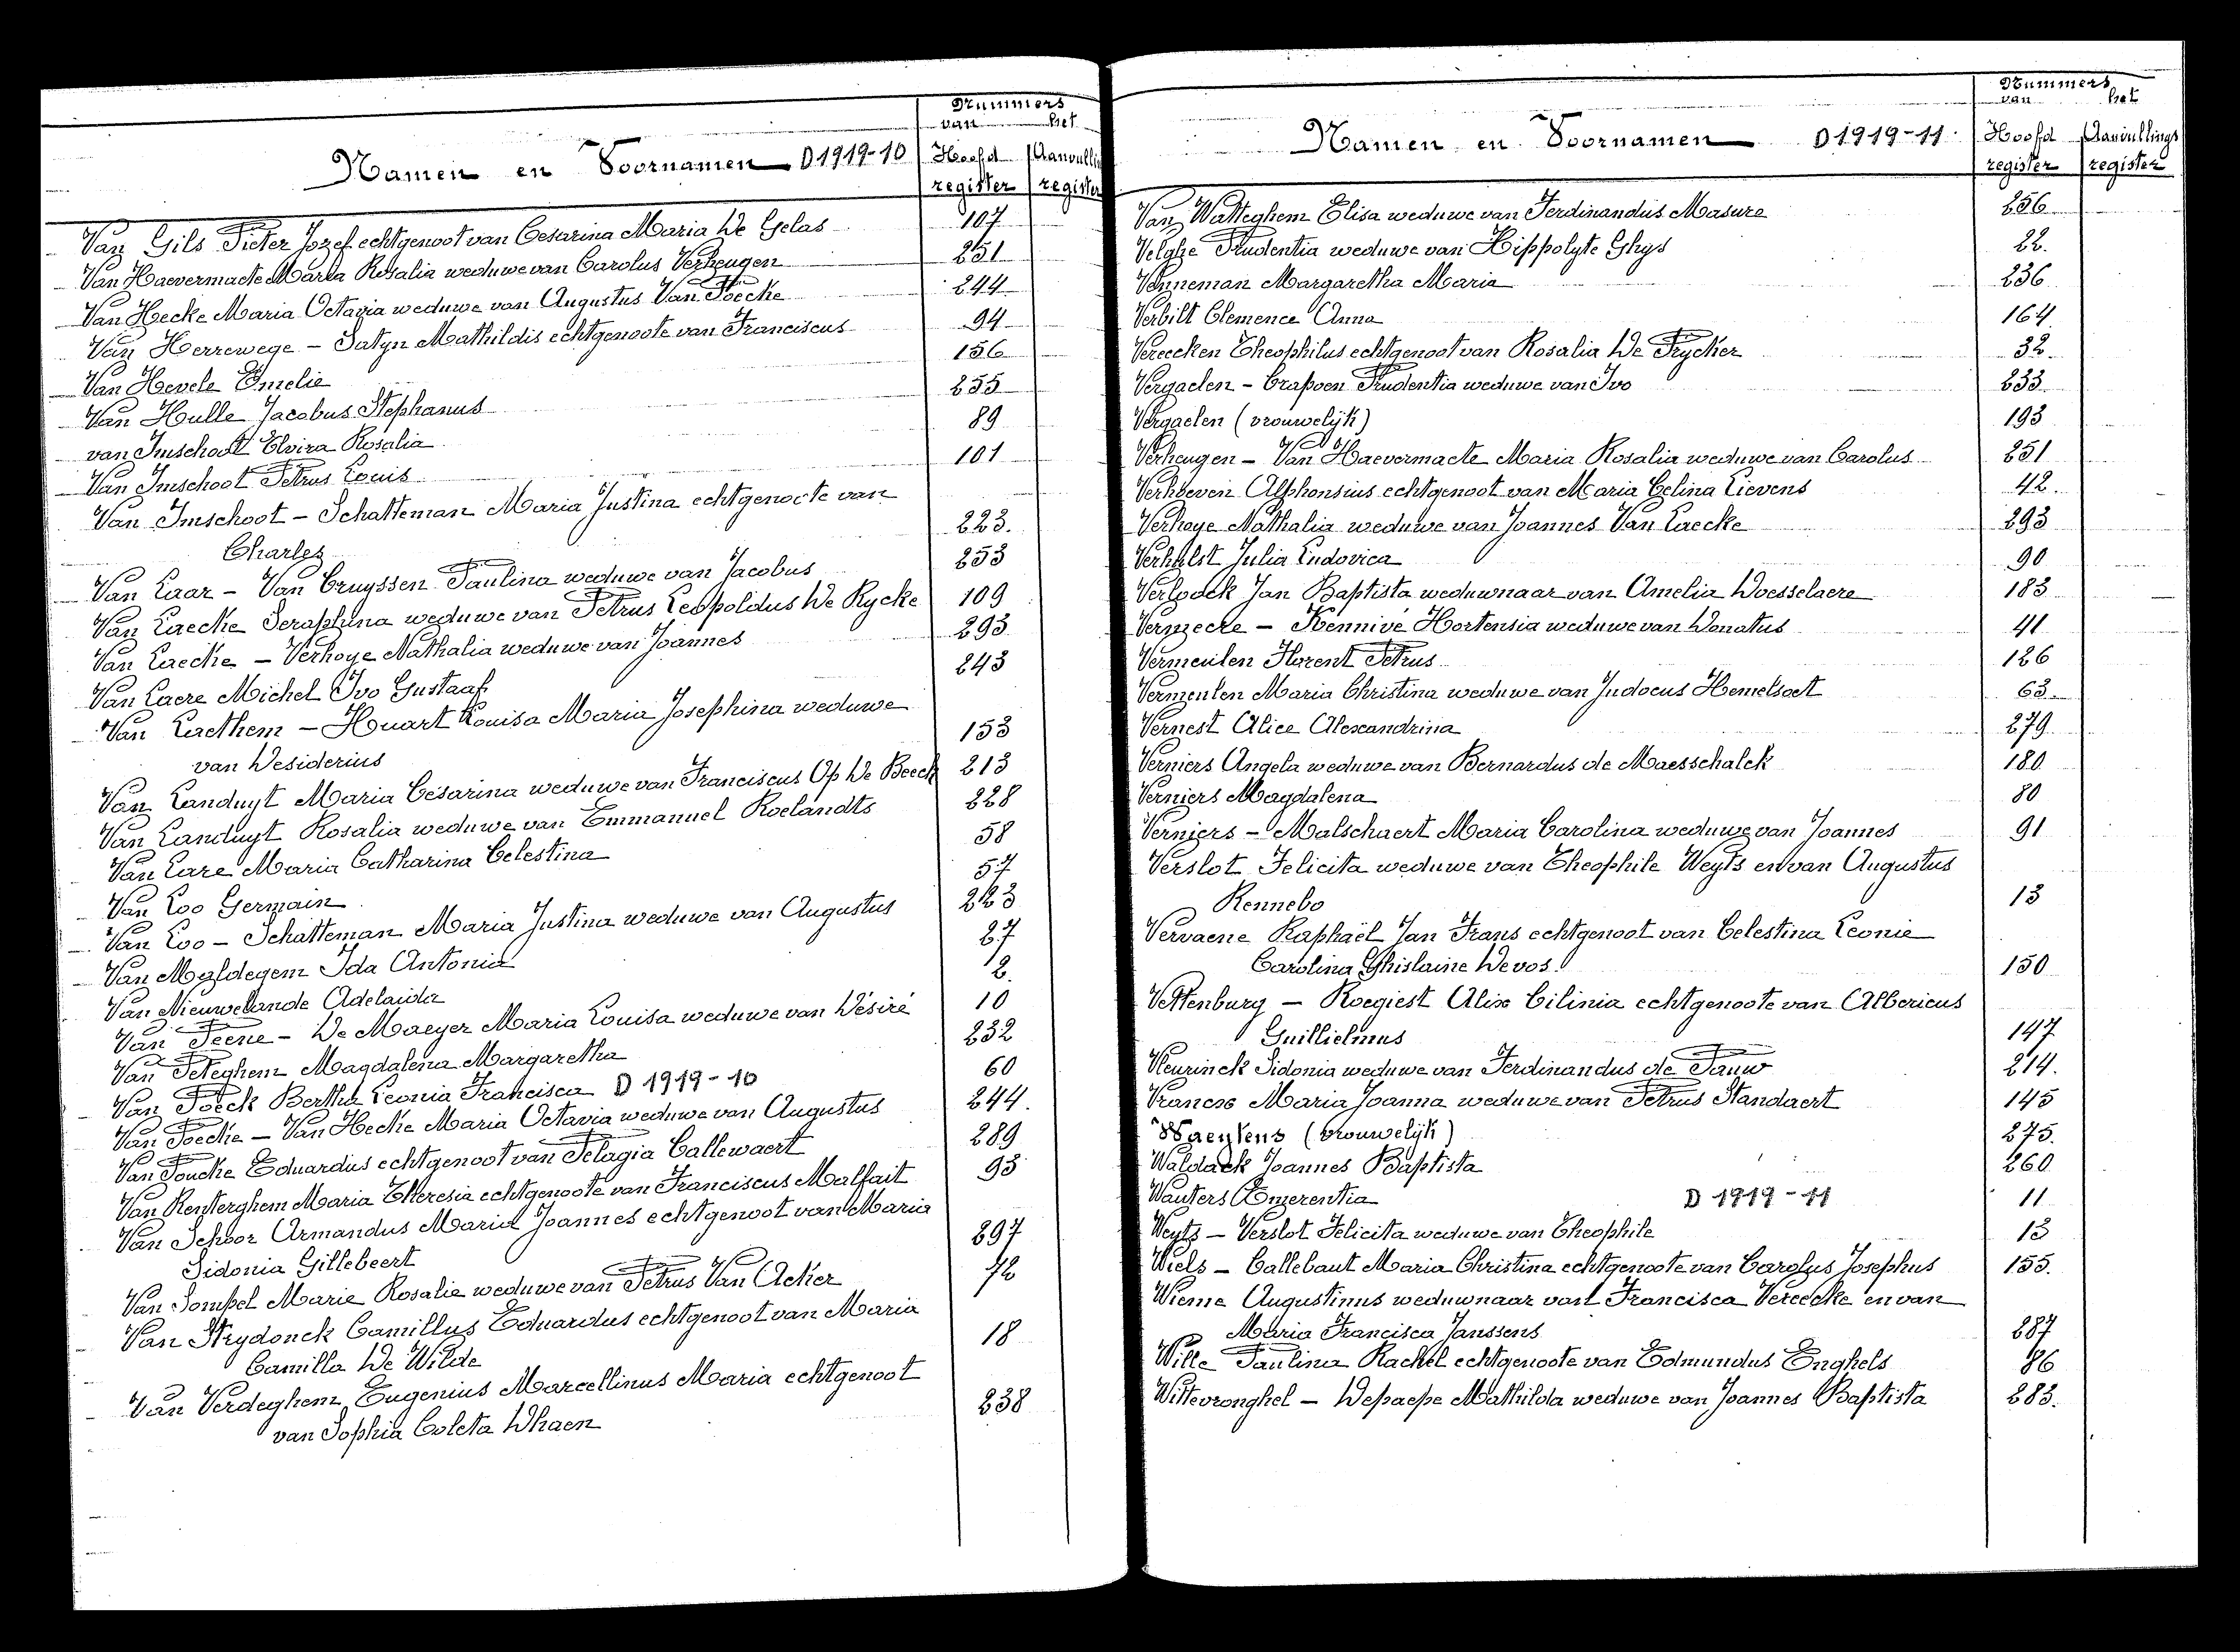 Nummers
van het
Namen en Voornamen D 1919-10 Hoofd Aanvullin
register register
Van Gils Pieter Jozef echtgenoot van Cesarina Maria De Gelas 107
Van Haevermaete Maria Rosalia weduwe van Carolus Verheugen 251
Van Hecke Maria Octavia weduwe van Augustus Van Poecke 244
Van Herrewege - Satyn Mathildis echtgenoote van Franciscus 94
Van Hevele Emelie 156
Van Hulle Jacobus Stephanus 255
van Imschoot Elvira Rosalia 89
Van Imschoot Petrus Louis 101
Van Imschoot - Schatteman Maria Justina echtgenoote van
Charles 223.
Van Laar - Van Cruyssen Paulina weduwe van Jacobus 253
Van Laecke Seraphina weduwe van Petrus Leopoldus De Rycke 109
Van Laecke - Verhoye Nathalia weduwe van Joannes 293
Van Laere Michel Ivo Gustaaf 243
Van Laethem - Huart Louisa Maria Josephina weduwe
van Desiderius 153
Van Landuyt Maria Césarina weduwe van Franciscus Op De Beeck 213
Van Landuyt Rosalia weduwe van Emmanuel Roelandts 228
Van Lare Maria Catharina Celestina 58
Van Loo Germain 57
Van Loo - Schatteman Maria Justina weduwe van Augustus 223
Van Maldegem Ida Antonia 27
Van Nieuwelande Adelaida 2.
Van Peene - De Maeyer Maria Louisa weduwe van Désiré 10
Van Peteghem Magdalena Margaretha 232
Van Poeck Bertha Leonia Francisca D 1919-10 60
Van Poecke - Van Hecke Maria Octavia weduwe van Augustus 244.
Van Poucke Eduardus echtgenoot van Pelagia Callewaert 289
Van Renterghem Maria Theresia echtgenoote van Franciscus Malfait 95
Van Schoor Armandus Maria Joannes echtgenoot van Maria
Sidonia Gillebeert 297
Van Sompel Marie Rosalie weduwe van Petrus Van Acker 72
Van Strydonck Camillus Eduardus echtgenoot van Maria
Camilla De Wilde 18
Van Verdeghem Eugenius Marcellinus Maria echtgenoot
van Sophia Coleta Dhaen 238
Nummers
van het
Namen en Voornamen D 1919-11 Hoofd Aanvullings
register register
Van Watteghem Elisa weduwe van Ferdinandus Masure 256
Velghe Prudentia weduwe van Hippolyte Ghys 22.
Venneman Margaretha Maria 236
Verbilt Clemence Anna 164
Vereecken Theophilus echtgenoot van Rosalia De Prycker 32.
Vergaelen - Crapoen Prudentia weduwe van Ivo 233
Vergaelen (vrouwelyk) 193
Verheugen - Van Haevermaete Maria Rosalia weduwe van Carolus 251
Verhoeven Alphonsius echtgenoot van Maria Celina Lievens 42.
Verhoye Nathalia weduwe van Joannes Van Laecke 293
Verhulst Julia Ludovica 90
Verloock Jan Baptista weduwnaar van Amelia Doesselaere 183
Vermeere - Hennivé Hortensia weduwe van Donatus 41
Vermeulen Florent Petrus 126
Vermeulen Maria Christina weduwe van Judocus Hemelsoet 63
Vernest Alice Alexandrina 279
Verniers Angela weduwe van Bernardus de Maesschalck 180
Verniers Magdalena 80
Verniers - Malschaert Maria Carolina weduwe van Joannes 91
Verslot Felicita weduwe van Theophile Weyts en van Augustus
Rennebo 13
Vervaene Raphaël Jan Frans echtgenoot van Celestina Leonie
Carolina Ghislaine Devos 150
Vettenburg - Roegiest Alix Cilinia echtgenoote van Albericus
Guillielmus 147
Vleurinck Sidonia weduwe van Ferdinandus de Pauw 214.
Vrancx Maria Joanna weduwe van Petrus Standaert 145
Waeytens (vrouwelijk) 275.
Waldack Joannes Baptista 260
Wauters Emerentia D 1919-11 11
Weyts - Verslot Felicita weduwe van Theophile 13
Wiels - Callebaut Maria Christina echtgenoote van Carolus Josephus 155.
Wieme Augustinus weduwnaar van Francisca Vereecke en van
Maria Francisca Janssens 287
Wille Paulina Rachel echtgenoote van Edmundus Enghels 86
Wittevronghel - Depaepe Mathilda weduwe van Joannes Baptista 283.